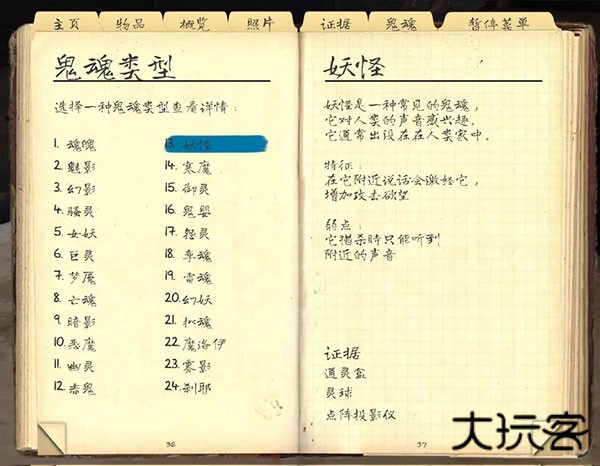 主页 物品 概览 照片 证据 鬼魂 暂停菜单
鬼魂类型
选择一种鬼魂类型查看详情：
1. 魂魄
2. 魅影
3. 幻影
4. 骚灵
5. 女妖
6. 巨灵
7. 梦魇
8. 亡魂
9. 暗影
10. 恶魔
11. 幽灵
12. 赤鬼
13. 妖怪
14. 寒魔
15. 御灵
16. 鬼婴
17. 怨灵
18. 孪魂
19. 雷魂
20. 幻妖
21. 拟魂
22. 魔洛伊
23. 雾影
24. 刹耶
36
妖怪
妖怪是一种常见的鬼魂，
它对人类的声音感兴趣。
它通常出没在在人类家中。
特征：
在它附近说话会激怒它，
增加攻击欲望
弱点：
它猎杀时只能听到
附近的声音
证据
通灵盒
灵球
点阵投影仪
37
大玩客